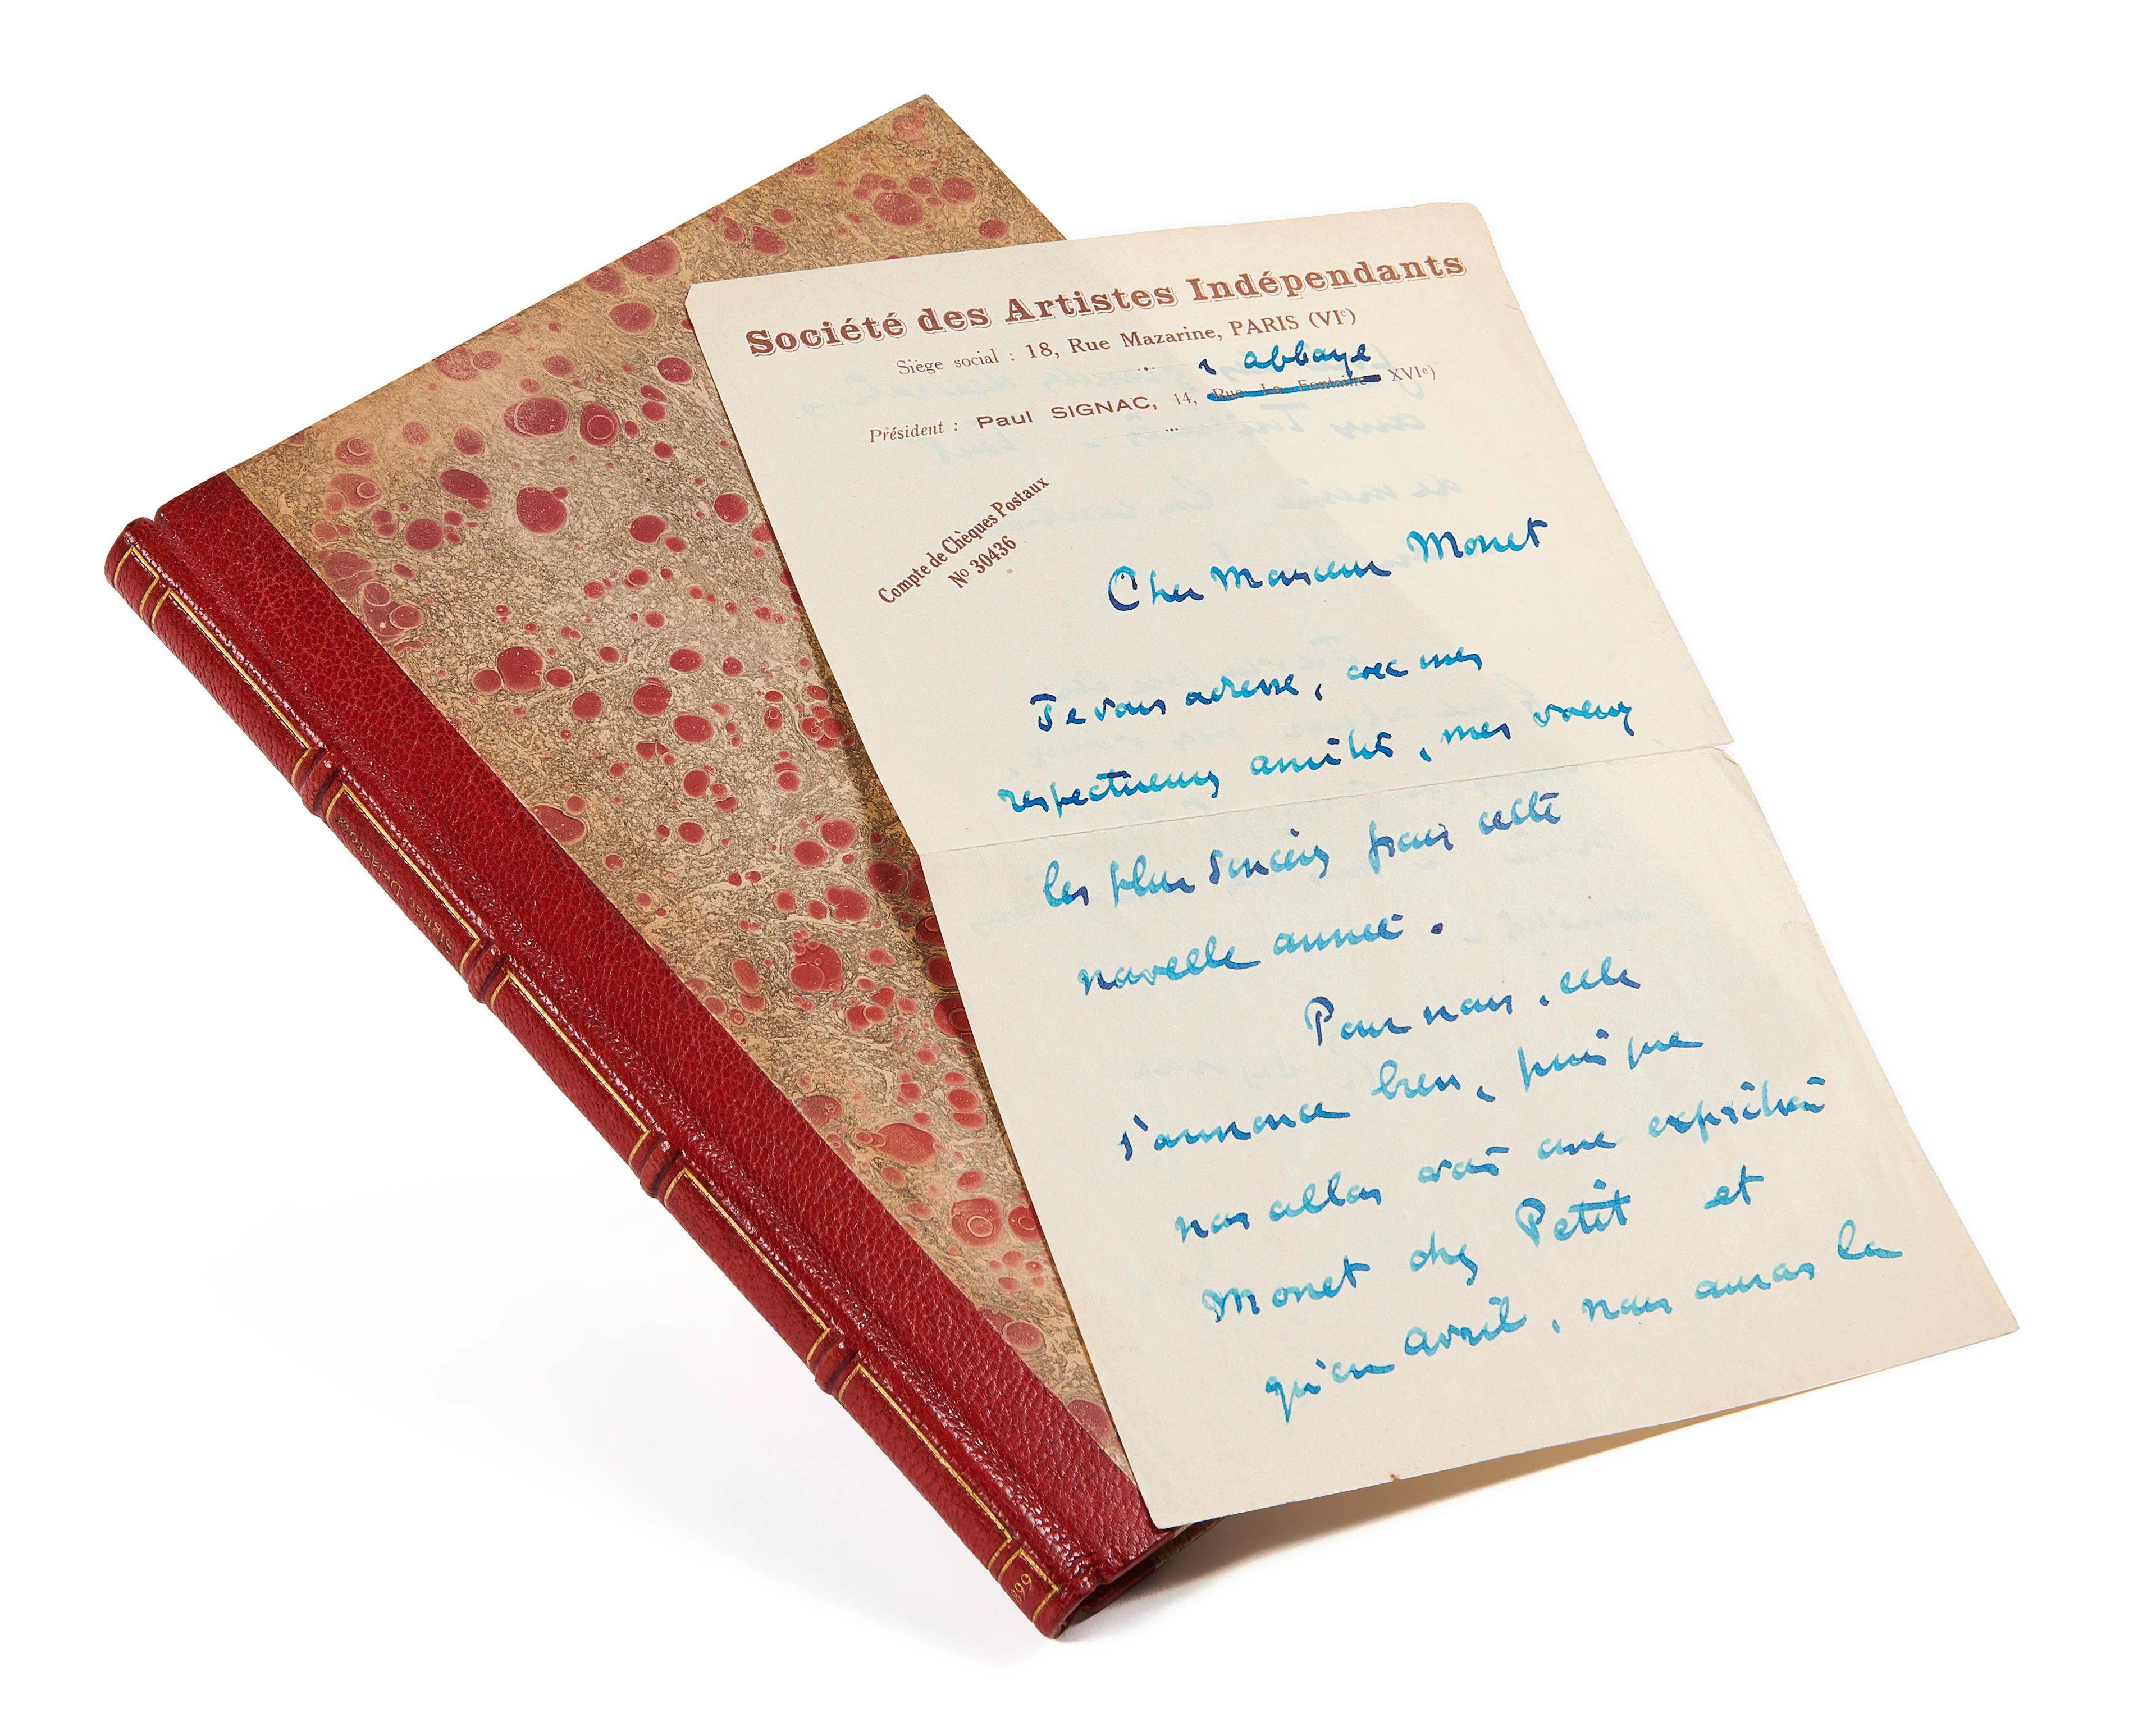 Société des Artistes Indépendants
Siège social : 18, Rue Mazarine, PARIS (VIe)
r abbaye
Président : Paul SIGNAC, 14, Rue La Fontaine XVIe)
Compte de Chèques Postaux
No 30436
Cher Monsieur Monet
Je vous adresse, avec mes
respectueuses amitiés, mes voeux
les plus sincères pour cette
nouvelle année.
Pour nous, elle
s'annonce bien, puisque
nous allons avoir une exposition
Monet chez Petit et
qu'en avril, nous aurons la